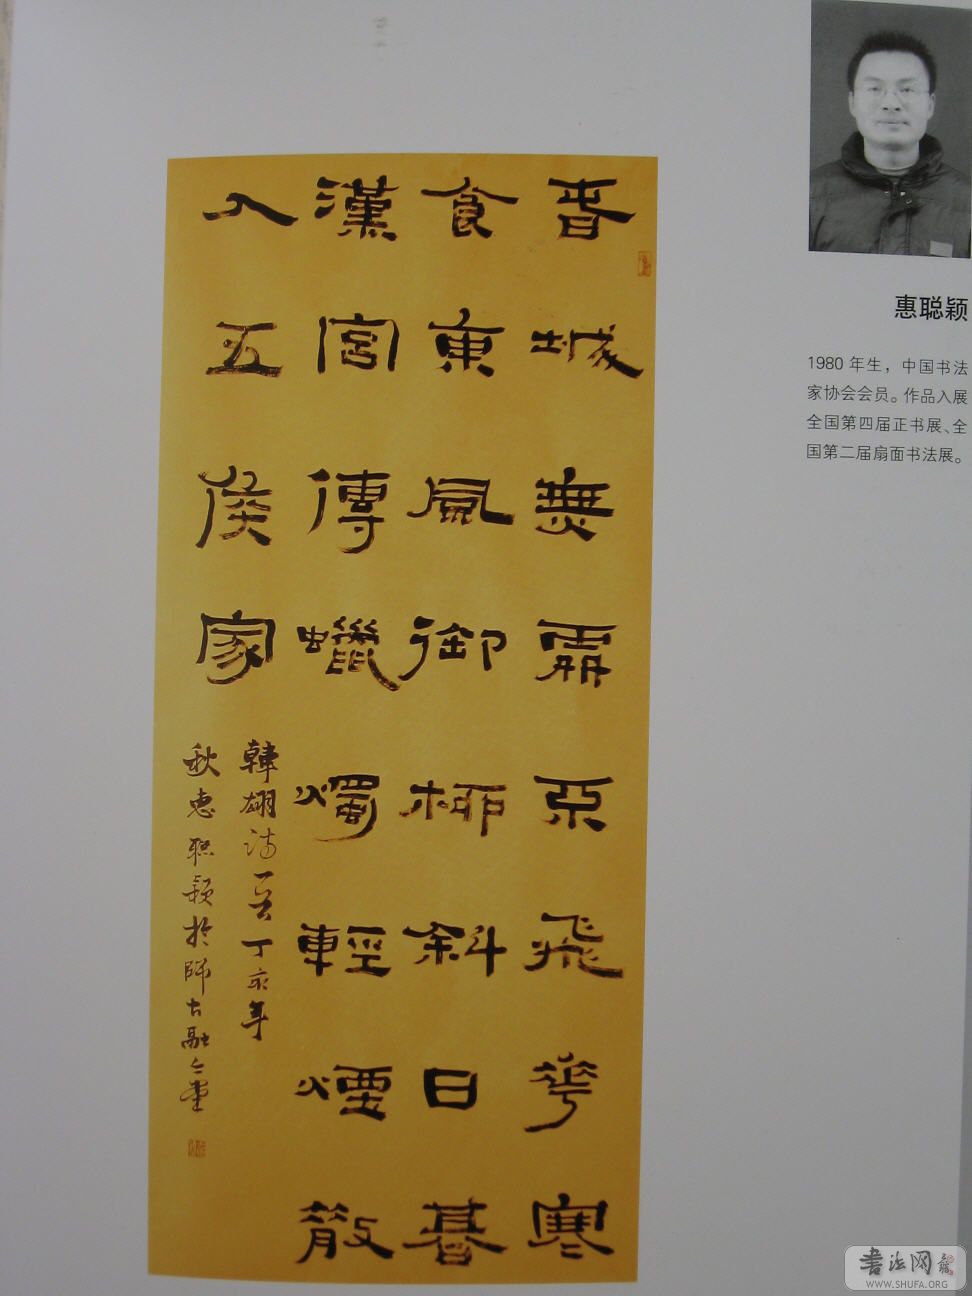 春城無處不飛花寒
食東風御柳斜日暮
漢宮傳蠟燭輕煙散
入五侯家
韓翃詩一首丁亥年
秋惠聰穎於師古融今堂
惠聪颖
1980 年生，中国书法
家协会会员。作品入展
全国第四届正书展、全
国第二届扇面书法展。
书法网
WWW.SHUFA.ORG